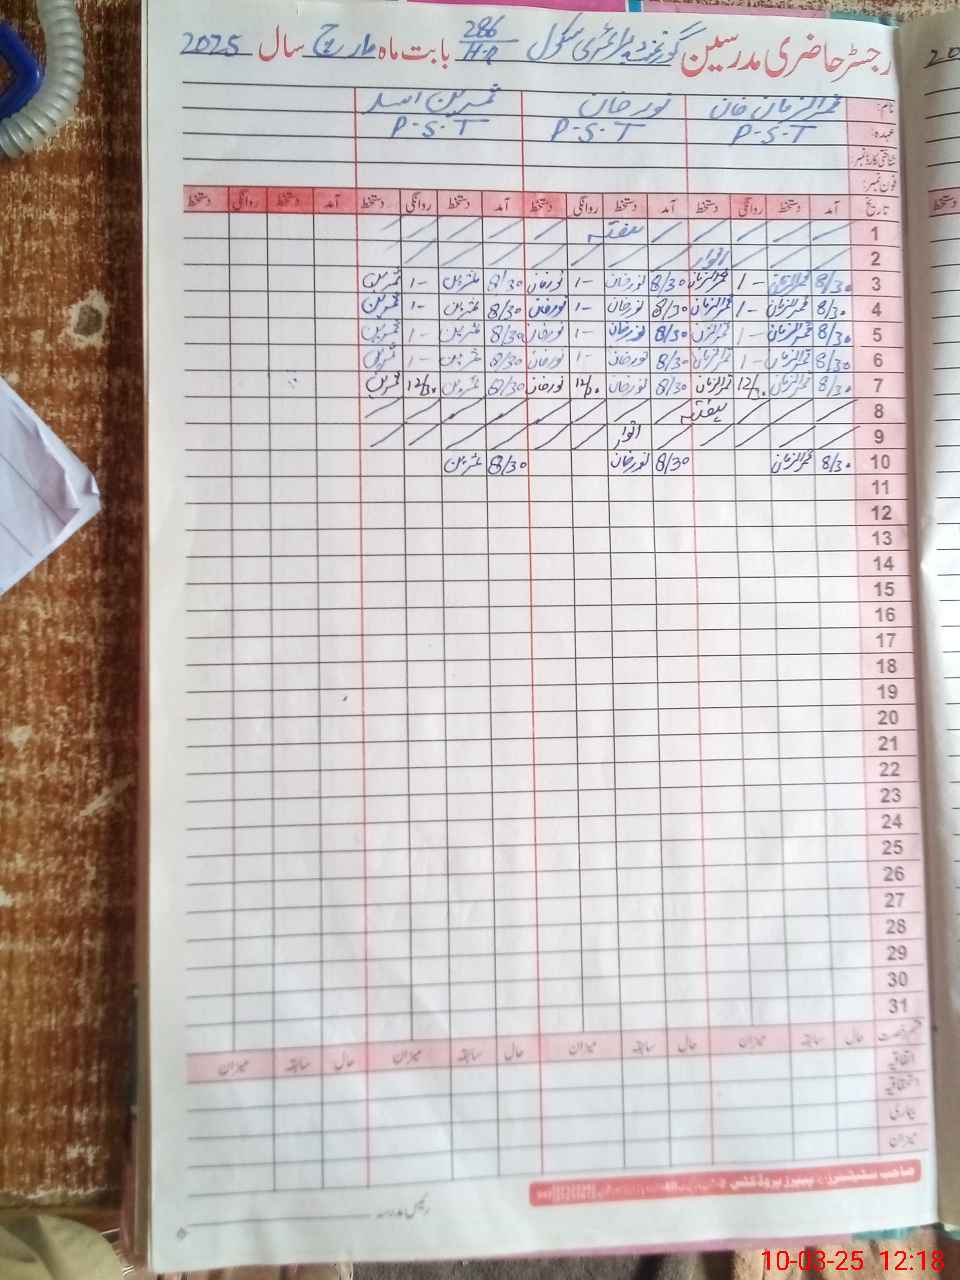 رجسٹر حاضری مدرسین گورنمنٹ پرائمری سکول 286/H-R بابت ماہ مارچ سال 2025
نام: قمرالزمان خان نور خان ثمرین اسد
عہدہ: P.S.T P.S.T P.S.T
شناختی کارڈ نمبر:
فون نمبر:
تاریخ آمد دستخط روانگی دستخط آمد دستخط روانگی دستخط آمد دستخط روانگی دستخط آمد دستخط روانگی دستخط
1 ہفتہ
2 اتوار
3 8/30 قمرالزمان 1- قمرالزمان 8/30 نور خان 1- نور خان 8/30 ثمرین 1- ثمرین
4 8/30 قمرالزمان 1- قمرالزمان 8/30 نور خان 1- نور خان 8/30 ثمرین 1- ثمرین
5 8/30 قمرالزمان 1- قمرالزمان 8/30 نور خان 1- نور خان 8/30 ثمرین 1- ثمرین
6 8/30 قمرالزمان 1- قمرالزمان 8/30 نور خان 1- نور خان 8/30 ثمرین 1- ثمرین
7 8/30 قمرالزمان 12/30 قمرالزمان 8/30 نور خان 12/30 نور خان 8/30 ثمرین 12/30 ثمرین
8 ہفتہ
9 اتوار
10 8/30 قمرالزمان 8/30 نور خان 8/30 ثمرین
11
12
13
14
15
16
17
18
19
20
21
22
23
24
25
26
27
28
29
30
31
حال سابقہ میزان حال سابقہ میزان حال سابقہ میزان حال سابقہ میزان
اتفاقیہ
بیماری
میزان
رئیس مدرسہ
10-03-25 12:18